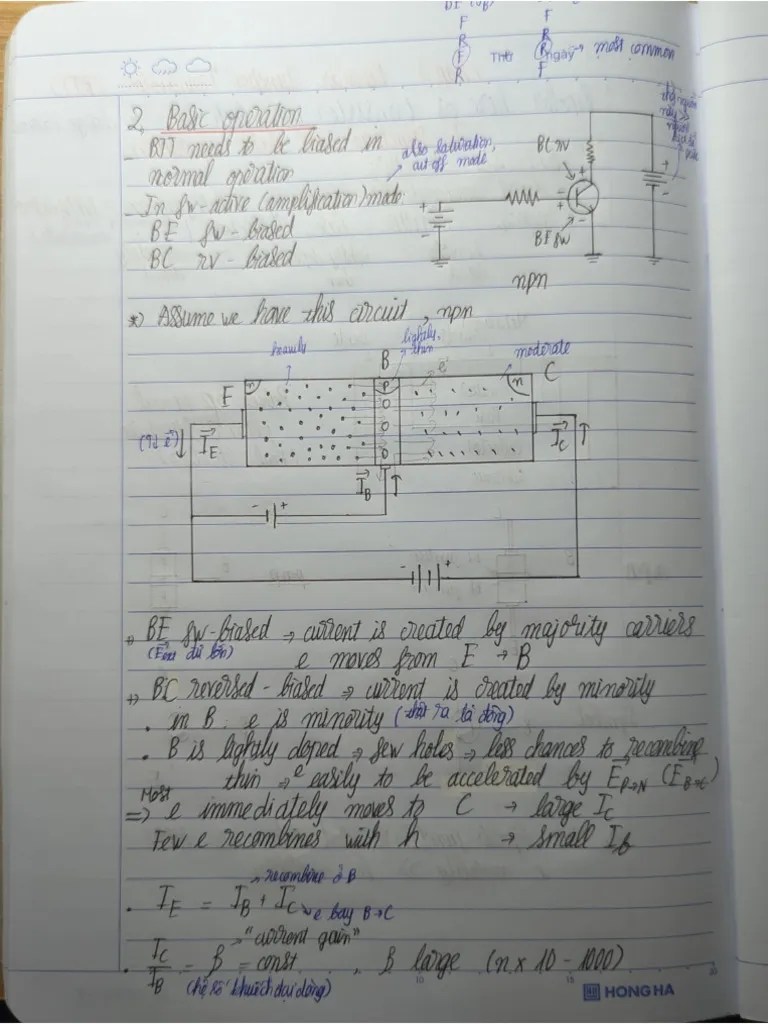 F
R
F
R
F
R
R
F
→ most common
Thứ
Ngày
2, Basic operation
- BJT needs to be biased in
normal operation
also saturation,
cut off mode
- In fw-active (amplification) mode:
BE fw-biased
BC rv-biased
BC rv
BE fw
npn
*) Assume we have this circuit, npn
heavily
B
lightly,
thin
moderate
E
n
p
e
n
C
I_E
I_B
I_C
+) BE fw-biased → current is created by majority carriers
e moves from E → B
+) BC reversed-biased → current is created by minority
. in B: e is minority (thật ra là dòng)
. B is lightly doped → few holes → less chances to recombine
thin → e easily to be accelerated by E P→N (E B→C)
Most
=> e immediately moves to C → large I_C
Few e recombines with h → small I_B
recombine ở B
. I_E = I_B + I_C
e bay B→C
"current gain"
. I_C / I_B = β = const , β large (n x 10 - 1000)
(hệ số khuếch đại dòng)
10
15
20
HONG HA